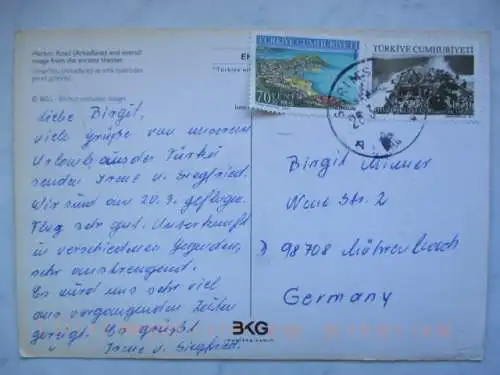 Harbor Road (Arkadiane) and overall
image from the ancient theater.
© BKG
Liebe Birgit,
viele Grüße von unserem
Urlaub aus der Türkei
senden Irene u. Siegfried.
Wir sind am 20.3. geflogen.
Flug sehr gut. Unterkunft
in verschiedenen Gegenden,
sehr anstrengend.
Es wird uns sehr viel
aus vergangenden Zeiten
gezeigt. Es grüßt
Irene u. Siegfried.
TÜRKİYE CUMHURİYETİ
70
TÜRKİYE CUMHURİYETİ
Birgit
Neue Str. 2
98708
Germany
BKG